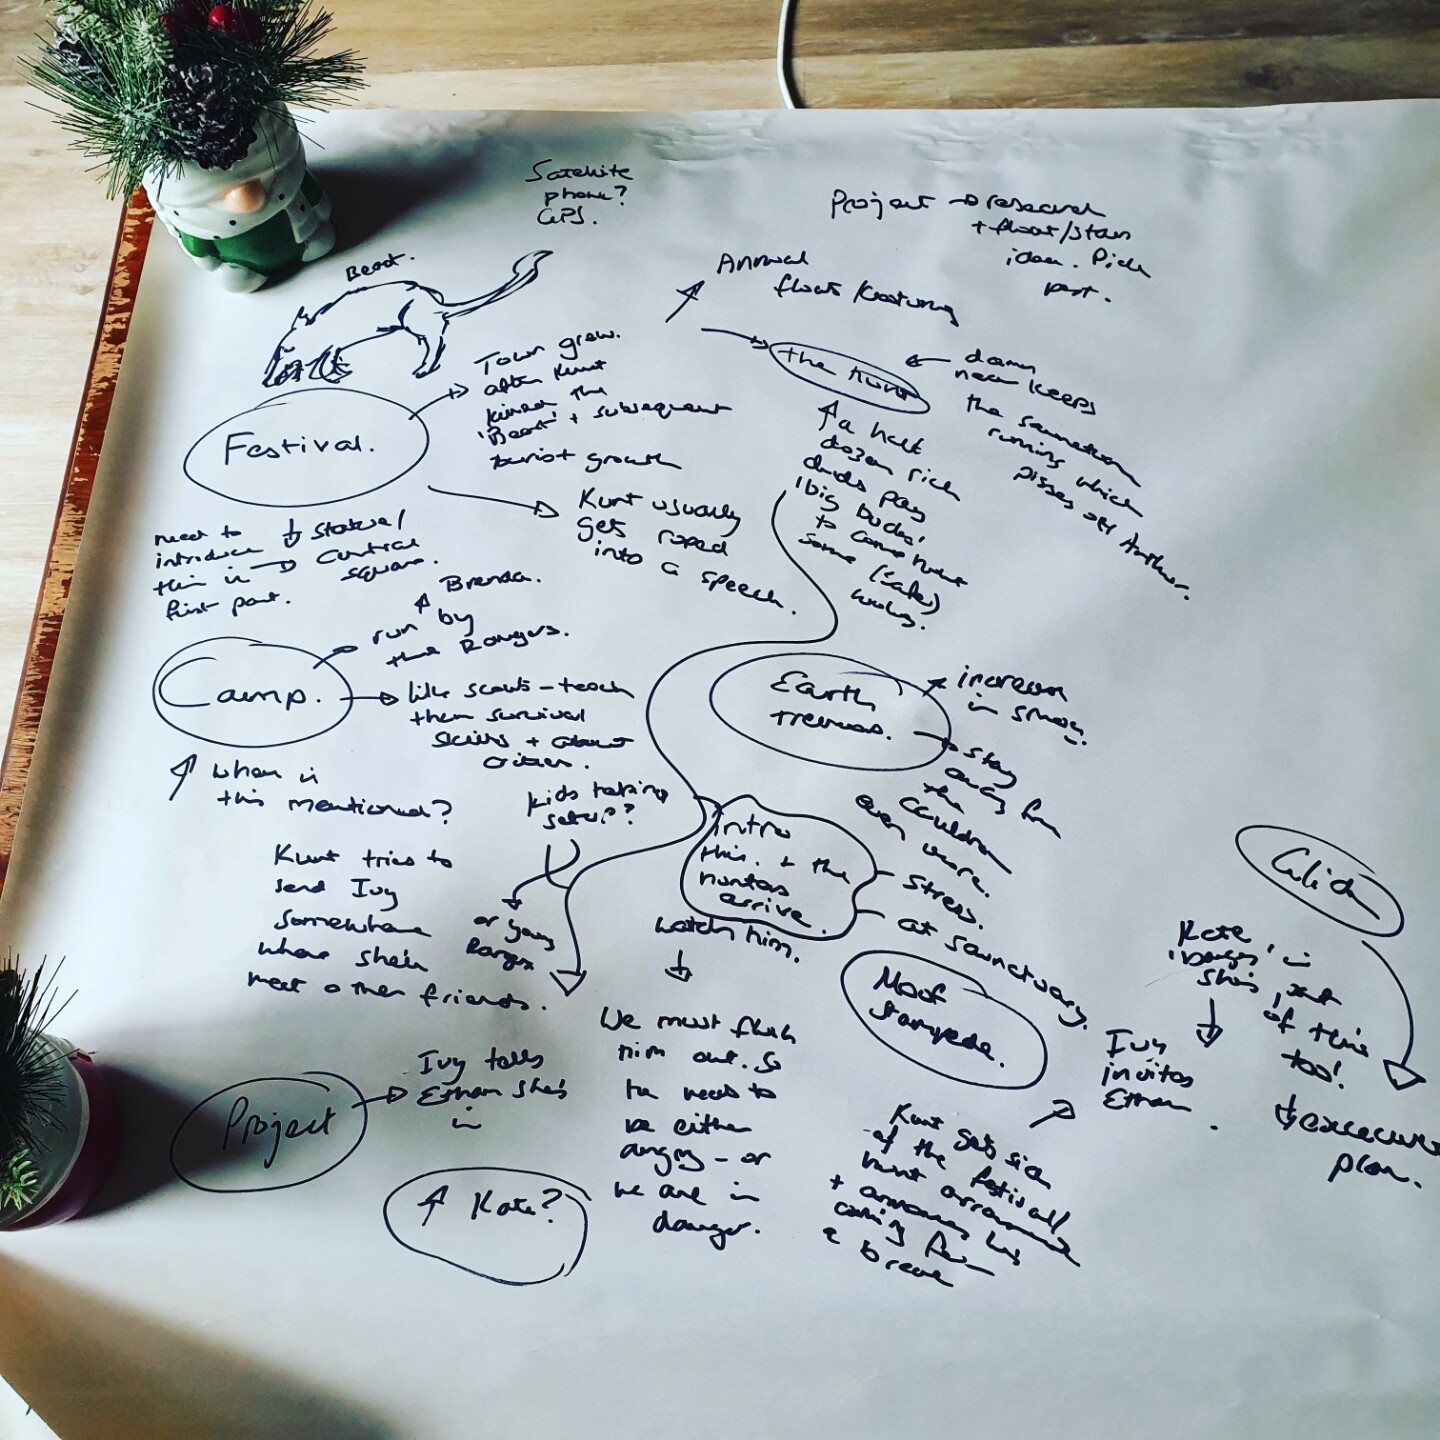 Satellite
phone?
GPS.
Project → research
+ float/stan
idea. Pick
part.
Beast.
Annual
floats/costuming
Town grew.
after Kurt
killed the
'Beast' + subsequent
tourist growth
the hunt
damn
near keeps
the sanctuary
running which
pisses off Author.
a half
dozen rich
dudes pay
'big bucks'
to come hunt
some (safe)
Festival.
Kurt usually
gets roped
into a speech.
need to
introduce
this in
first part.
statue/
central
square.
Brenda.
run by
the Rangers.
Camp.
like scouts - teach
them survival
skills + about
when is
this mentioned?
kids taking
Earth
tremors.
increase
in smog.
stay
away from
the
cauldron
even more.
intro
this. + the
hunters
arrive.
stress.
at sanctuary.
Kurt tries to
send Ivy
somewhere
where she'll
meet other friends.
or young
Ranger
watch him.
We must flush
him out. So
he needs to
be either
angry - or
we are in
danger.
Moof
stampede.
Kurt gets sick
of the festival/
hunt
+ announces he's
for
a break
Kate
she's part
of this
too!
Ivy
invites
Ethan.
plan.
Project
Ivy tells
Ethan she's
in
Kate?